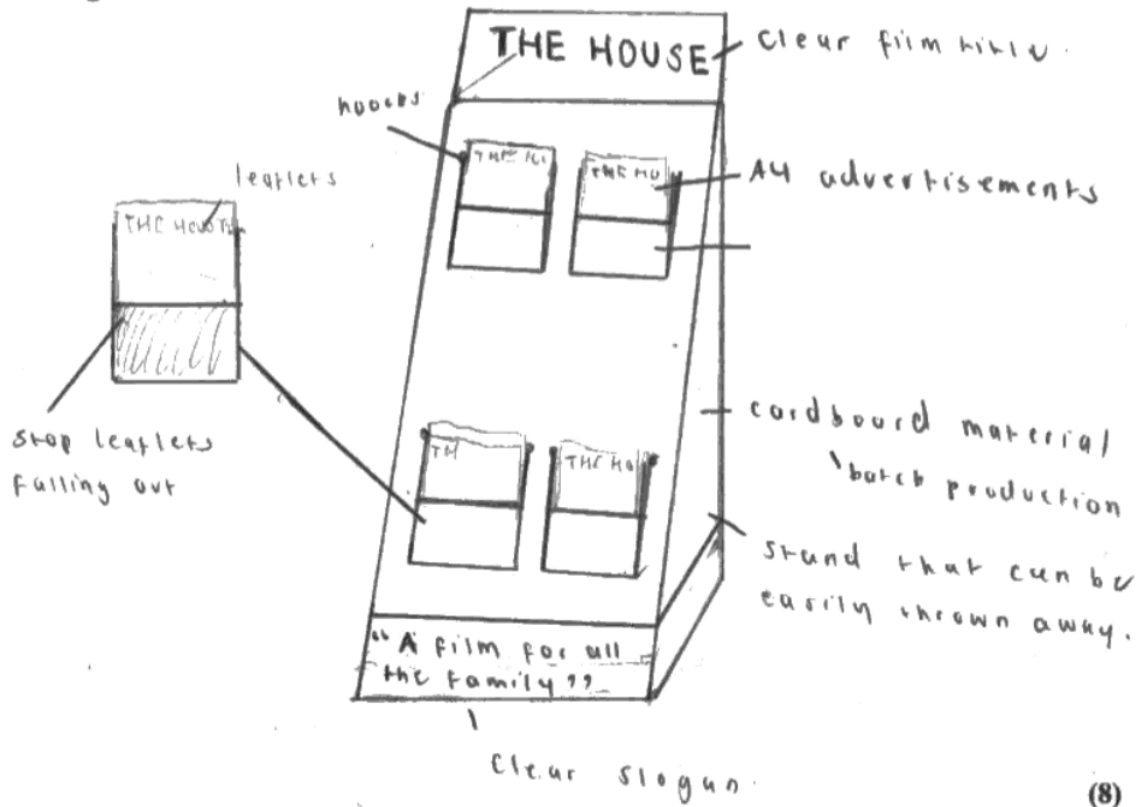 THE HOUSE
clear film title.
leaflets
THE HOUSE
THE HO
THE HO
A4 advertisements
stop leaflets
falling out
TH
THE HO
cardboard material
batch production
stand that can be
easily thrown away.
"A film for all
the family"
clear slogan.
(8)